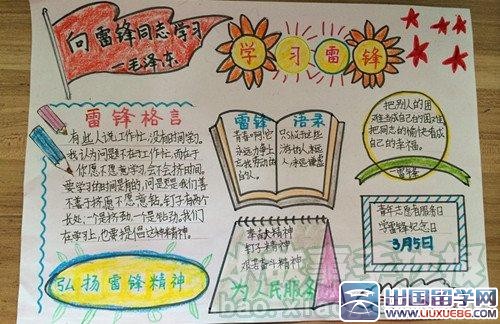 向雷锋同志学习
—毛泽东
学习雷锋
雷锋格言
有些人说工作忙,没有时间学习。
我认为问题不在工作忙,而在于
你愿不愿意学习,会不会挤时间。
要学习的时间是有的,问题是我们善
不善于挤,愿不愿意钻。钉子有两个
长处:一个是挤劲,一个是钻劲。我们
在学习上,也要提倡这种精神。
弘扬雷锋精神
雷锋 语录
青春啊,它
永远
的人。
永远
把别人的困
难当成自己的困难
把同志的愉快看成
自己的幸福。
青年志愿者服务日
学雷锋纪念日
3月5日
奉献精神
钉子精神
艰苦奋斗精神
为人民服务
出国留学网
www.liuxue86.com